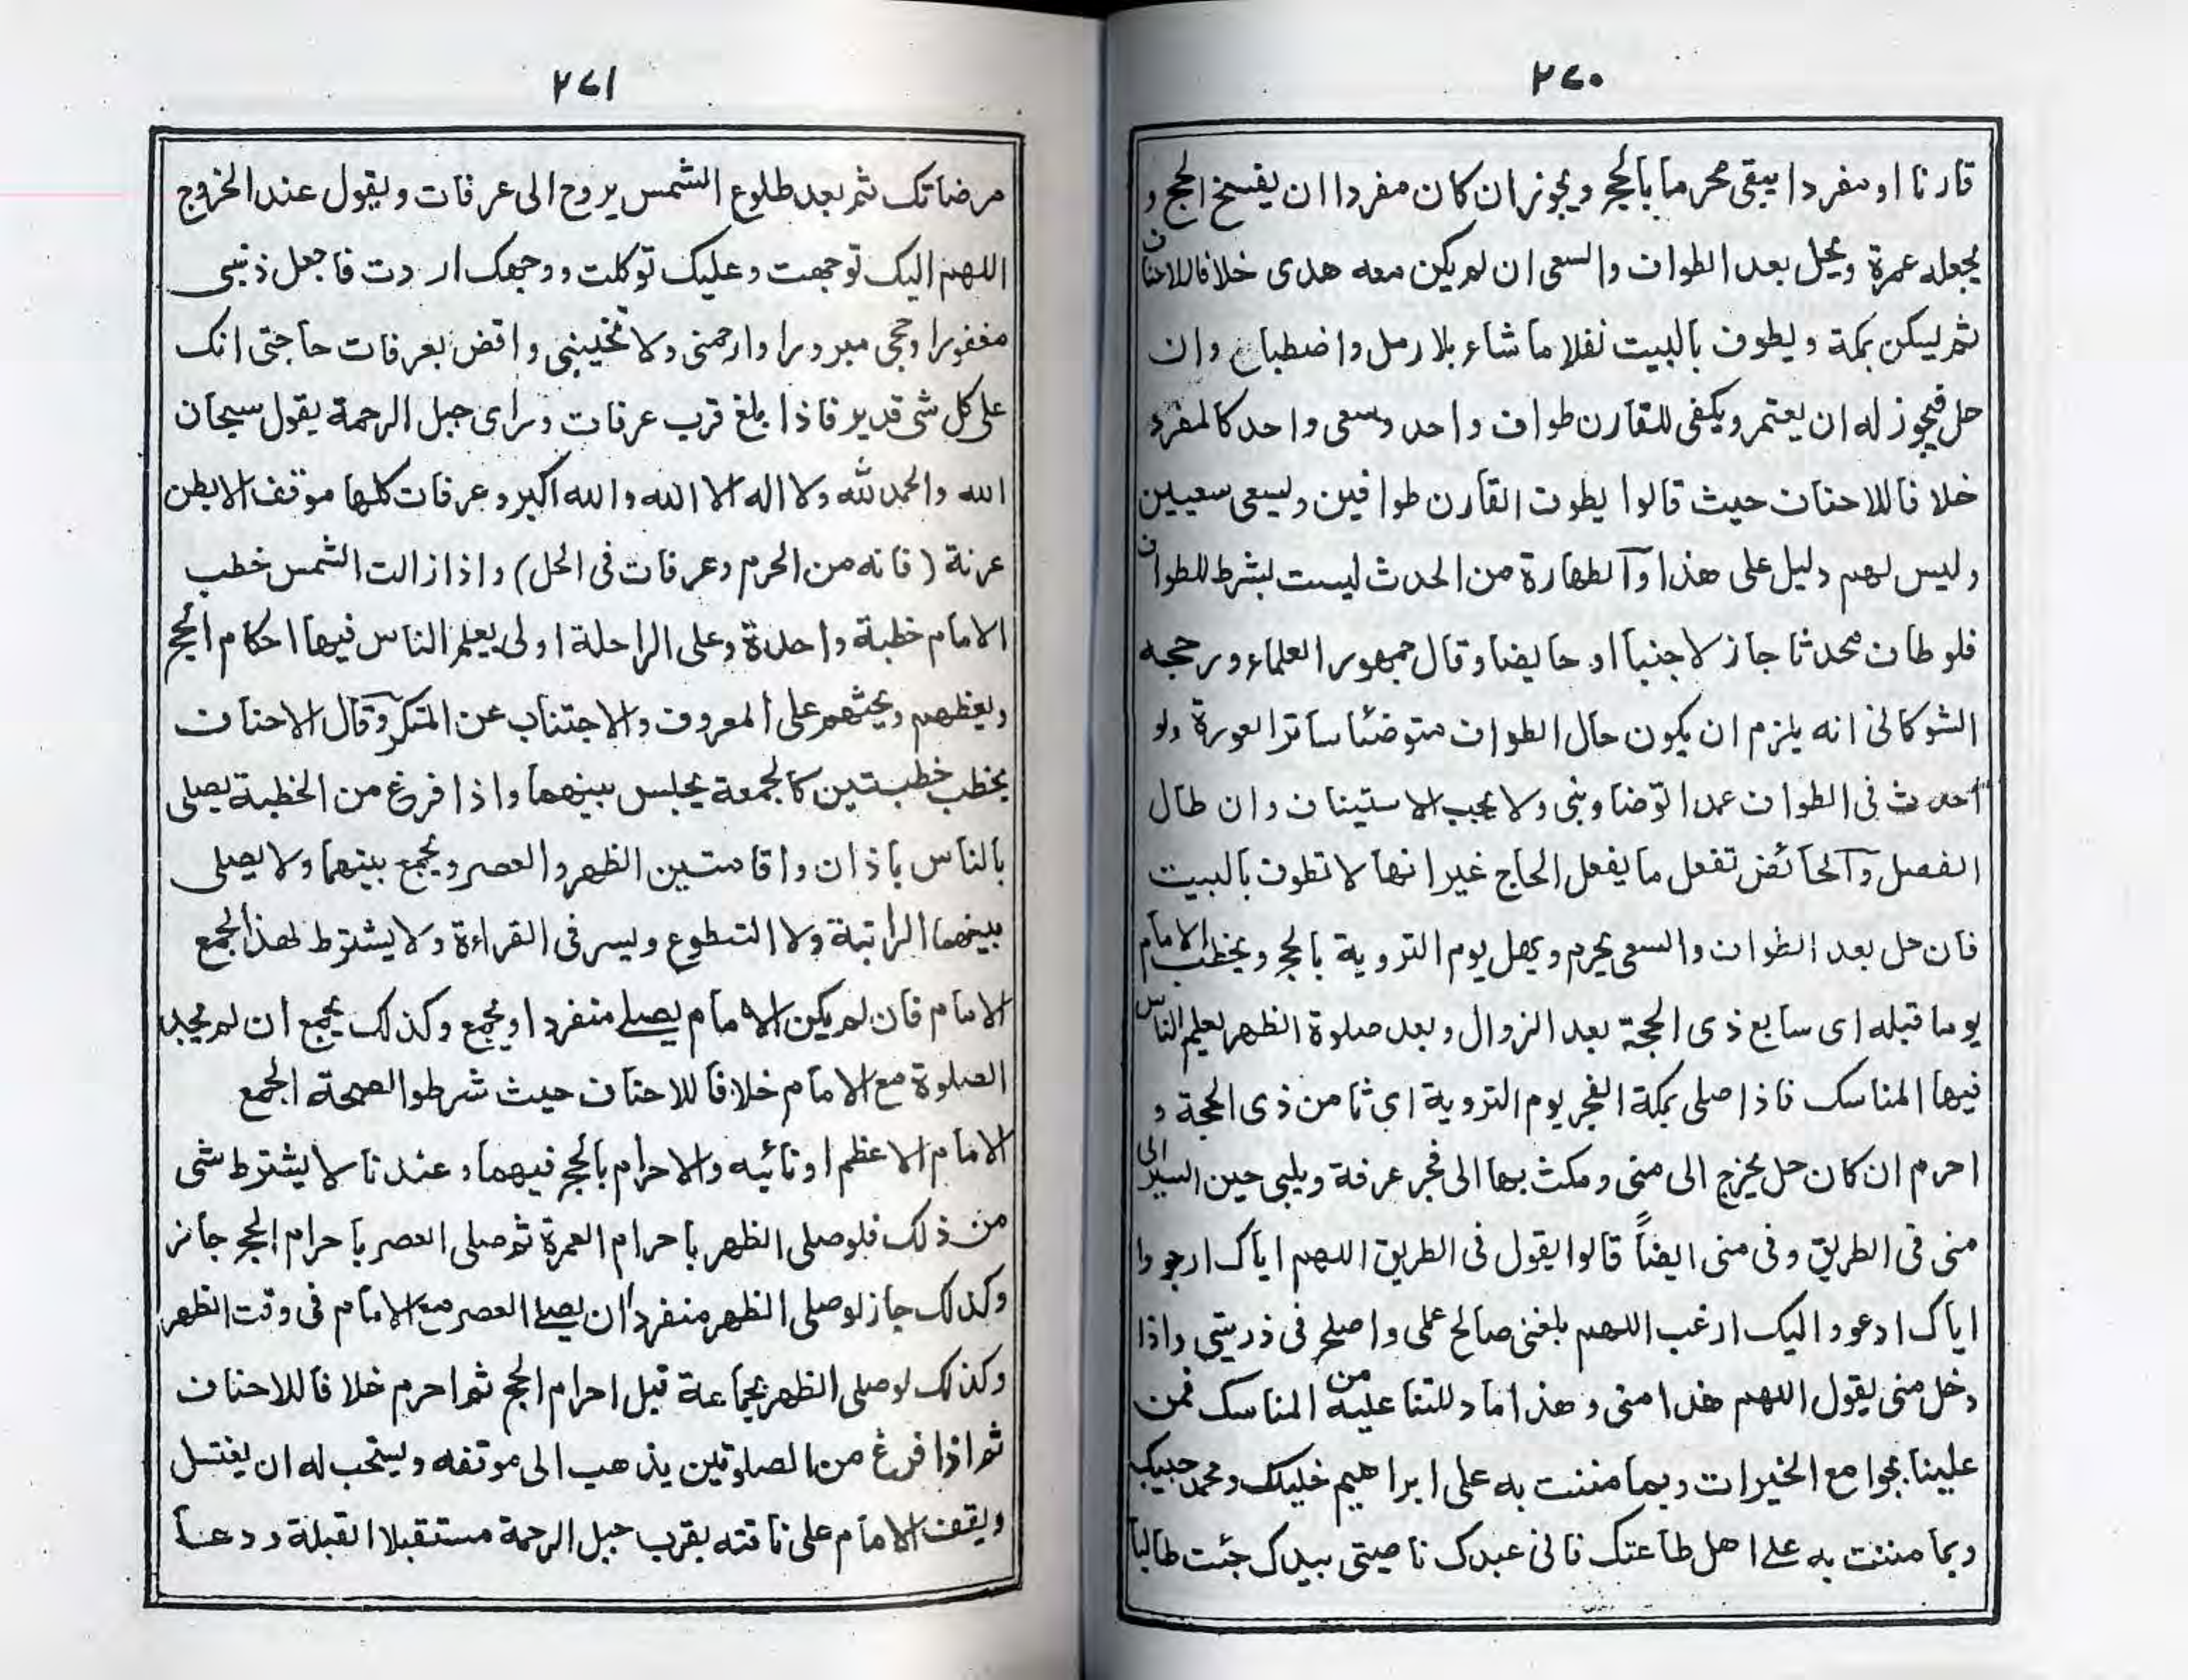 ٢٦٠
قارنا او مفردا يبقى محرما بالحج ويجوز ان كان مفردا ان يفسخ الحج و
يجعله عمرة ويحل بعد الطواف والسعى ان لم يكن معه هدى خلافا للاحناف
ثم ليسكن بمكة و ليطوف بالبيت نفلا ما شاء بلا رمل واضطباع وان
حل فيجوز له ان يعتمر ويكفى للقارن طواف واحد وسعى واحد كالمفرد
خلافا للاحناف حيث قالوا يطوف القارن طوافين وليسعى سعيين
وليس لهم دليل على هذا والطهارة من الحدث ليست بشرط للطواف
فلو طاف محدثا جاز لا جنبا او حايضا وقال جمهور العلماء ورجحه
الشوكانى انه يلزم ان يكون حال الطواف متوضئا ساترا لعورة ولو
احدث فى الطواف عمدا توضا وبنى ولا يجب الاستيناف وان طال
الفصل والحائض تفعل ما يفعل الحاج غير انها لا تطوف بالبيت
فان حل بعد الطواف والسعى يحرم ويهل يوم التروية بالحج ويخطب الامام
يوما قبله اى سابع ذى الحجة بعد الزوال وبعد صلوة الظهر يعلم الناس
فيها المناسك فاذا صلى بمكة الفجر يوم التروية اى ثامن ذى الحجة و
احرم ان كان حل يخرج الى منى ومكث بها الى فجر عرفة ويلبى حين السير الى
منى فى الطريق وفى منى ايضاً قالوا يقول فى الطريق اللهم اياك ارجو وا
اياك ادعو واليك ارغب اللهم بلغنى صالح عملى واصلح فى ذريتى واذا
دخل منى يقول اللهم هذا منى وهذا ما دللتنا عليه من المناسك فمن
علينا بجوامع الخيرات وبما مننت به على ابراهيم خليلك ومحمد حبيبك
وبما مننت به على اهل طاعتك فانى عبدك ناصيتى بيدك جئت طالبا
٢٦١
مرضاتك ثم بعد طلوع الشمس يروح الى عرفات ويقول عند الخروج
اللهم اليك توجهت وعليك توكلت ووجهك اردت فاجعل ذنبى
مغفورا وحجى مبرورا وارحمنى ولا تخيبنى واقض بعرفات حاجتى انك
على كل شى قدير فاذا بلغ قرب عرفات وراى جبل الرحمة يقول سبحان
الله والحمد لله ولا اله الا الله والله اكبر وعرفات كلها موقف الا بطن
عرنة (فانه من الحرم وعرفات فى الحل) واذا زالت الشمس خطب
الامام خطبة واحدة وعلى الراحلة اولى يعلم الناس فيها احكام الحج
ويعظهم ويحثهم على المعروف والاجتناب عن المنكر وقال الاحناف
يخطب خطبتين كالجمعة يجلس بينهما واذا فرغ من الخطبة يصلى
بالناس باذان واقامتين الظهر والعصر ويجمع بينهما ولا يصلى
بينهما الراتبة ولا التطوع ويسر فى القراءة ولا يشترط لهذا الجمع
الامام فان لم يكن الامام يصلے منفردا ويجمع وكذلك يجمع ان لم يجد
الصلوة مع الامام خلافا للاحناف حيث شرطوا لصحة الجمع
الامام الاعظم او نائبه والاحرام بالحج فيهما وعندنا لا يشترط شى
من ذلك فلو صلى الظهر باحرام العمرة ثم صلى العصر باحرام الحج جاز
وكذلك جاز لو صلى الظهر منفردا ان يصلے العصر مع الامام فى وقت الظهر
وكذلك لو صلى الظهر بجماعة قبل احرام الحج ثم احرم خلافا للاحناف
ثم اذا فرغ من الصلوتين يذهب الى موقفه ويستحب له ان يغتسل
ويقف الامام على ناقته بقرب جبل الرحمة مستقبلا القبلة ودعا